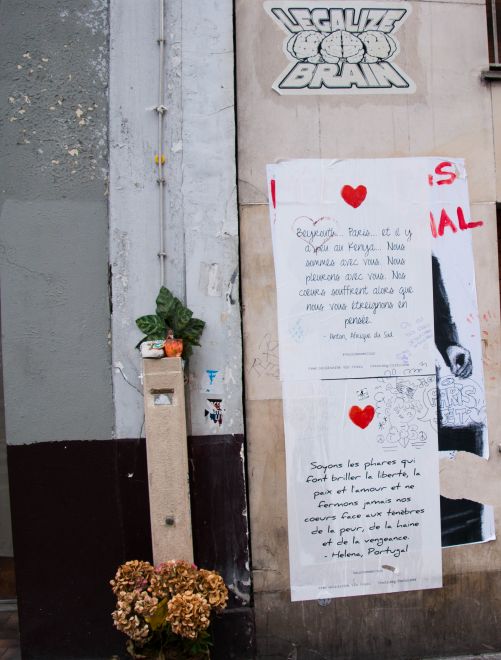 LEGALIZE
BRAIN
Beyrouth... Paris... et il y
a peu au Kenya... Nous
sommes avec vous. Nous
pleurons avec vous. Nos
coeurs souffrent alors que
nous vous étreignons en
pensée.
- Anton, Afrique du Sud
Soyons les phares qui
font briller la liberté, la
paix et l'amour et ne
fermons jamais nos
coeurs face aux ténèbres
de la peur, de la haine
et de la vengeance.
- Helena, Portugal